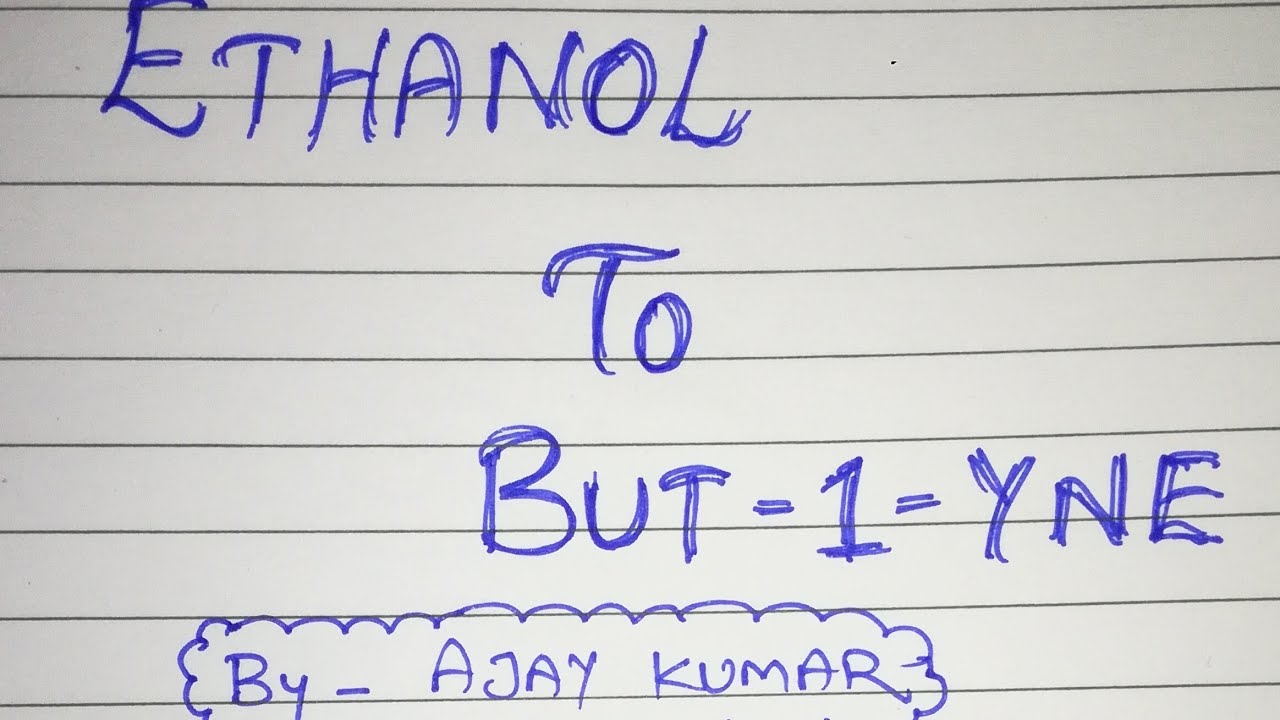 ETHANOL
TO
BUT-1-YNE
By - AJAY KUMAR